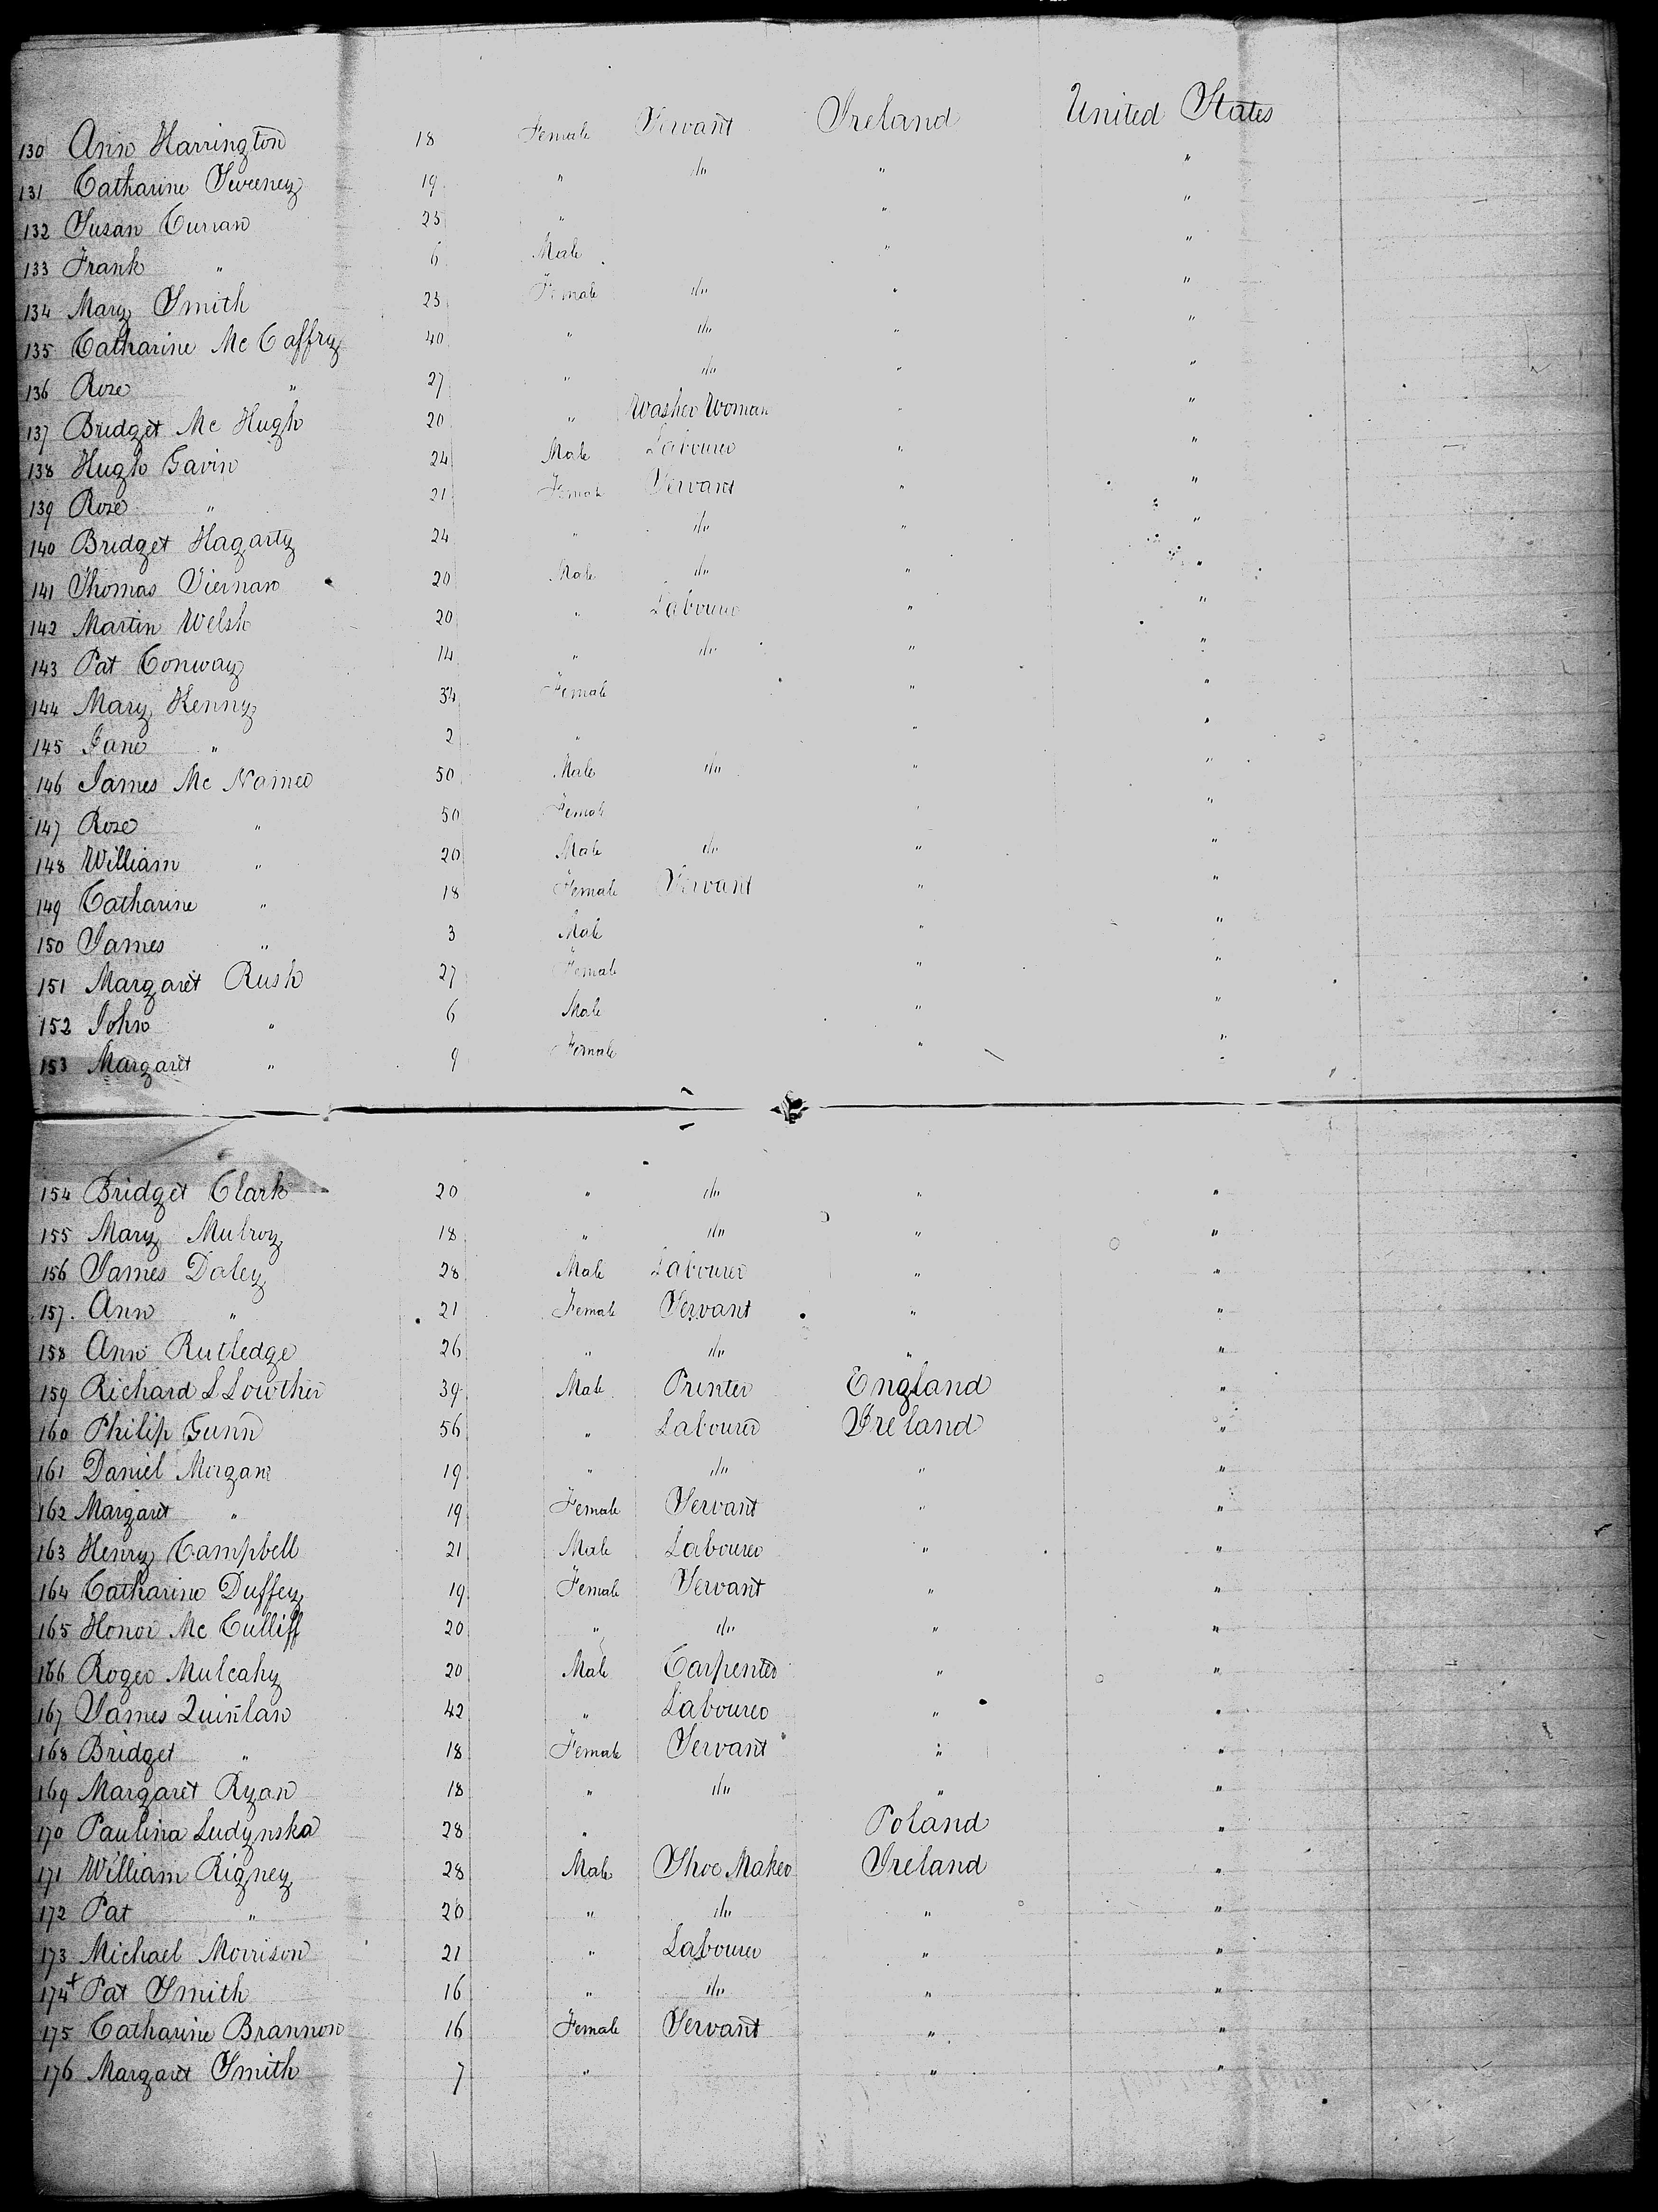 130 Ann Harrington 18 Female Servant Ireland United States
131 Catharine Sweeney 19 " do " "
132 Susan Curran 25 " " "
133 Frank " 6 Male " "
134 Mary Smith 23 Female do " "
135 Catharine McCaffry 40 " do " "
136 Rose " 27 " do " "
137 Bridget McHugh 20 " Washer Woman " "
138 Hugh Gavin 24 Male Labourer " "
139 Rose " 21 Female Servant " "
140 Bridget Hagarty 24 " do " "
141 Thomas Tiernan 20 Male do " "
142 Martin Welsh 20 " Labourer " "
143 Pat Conway 14 " do " "
144 Mary Kenny 34 Female " "
145 Jane " 2 " " "
146 James McNamee 50 Male do " "
147 Rose " 50 Female " "
148 William " 20 Male do " "
149 Catharine " 18 Female Servant " "
150 James " 3 Male " "
151 Margaret Rush 27 Female " "
152 John " 6 Male " "
153 Margaret " 9 Female " "
154 Bridget Clark 20 " do " "
155 Mary Mulroy 18 " do " "
156 James Daley 28 Male Labourer " "
157. Ann " 21 Female Servant " "
158 Ann Rutledge 26 " do " "
159 Richard L Lowther 39 Male Printer England "
160 Philip Gunn 56 " Labourer Ireland "
161 Daniel Morgan 19 " do " "
162 Margaret " 19 Female Servant " "
163 Henry Campbell 21 Male Labourer " "
164 Catharine Duffey 19 Female Servant " "
165 Honor McCulliff 20 " do " "
166 Roger Mulcahy 20 Male Carpenter " "
167 James Quinlan 42 " Labourer " "
168 Bridget " 18 Female Servant " "
169 Margaret Ryan 18 " do " "
170 Paulina Ludynska 28 " Poland "
171 William Rigney 28 Male Shoe Maker Ireland "
172 Pat " 20 " do " "
173 Michael Morrison 21 " Labourer " "
174 + Pat Smith 16 " do " "
175 Catharine Brannon 16 Female Servant " "
176 Margaret Smith 7 " " "